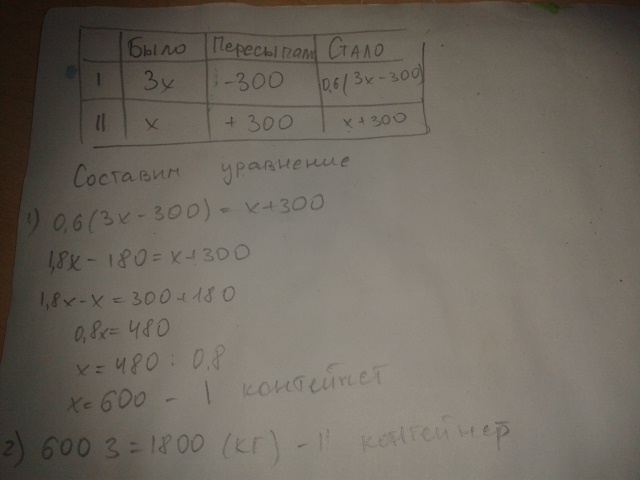 Было Пересыпали Стало
I 3x -300 0,6(3x-300)
II x +300 x+300
Составим уравнение
1) 0,6(3x-300)=x+300
1,8x-180=x+300
1,8x-x=300+180
0,8x=480
x=480:0,8
x=600 - I контейнет
2) 600 3=1800 (кг) - II контейнер